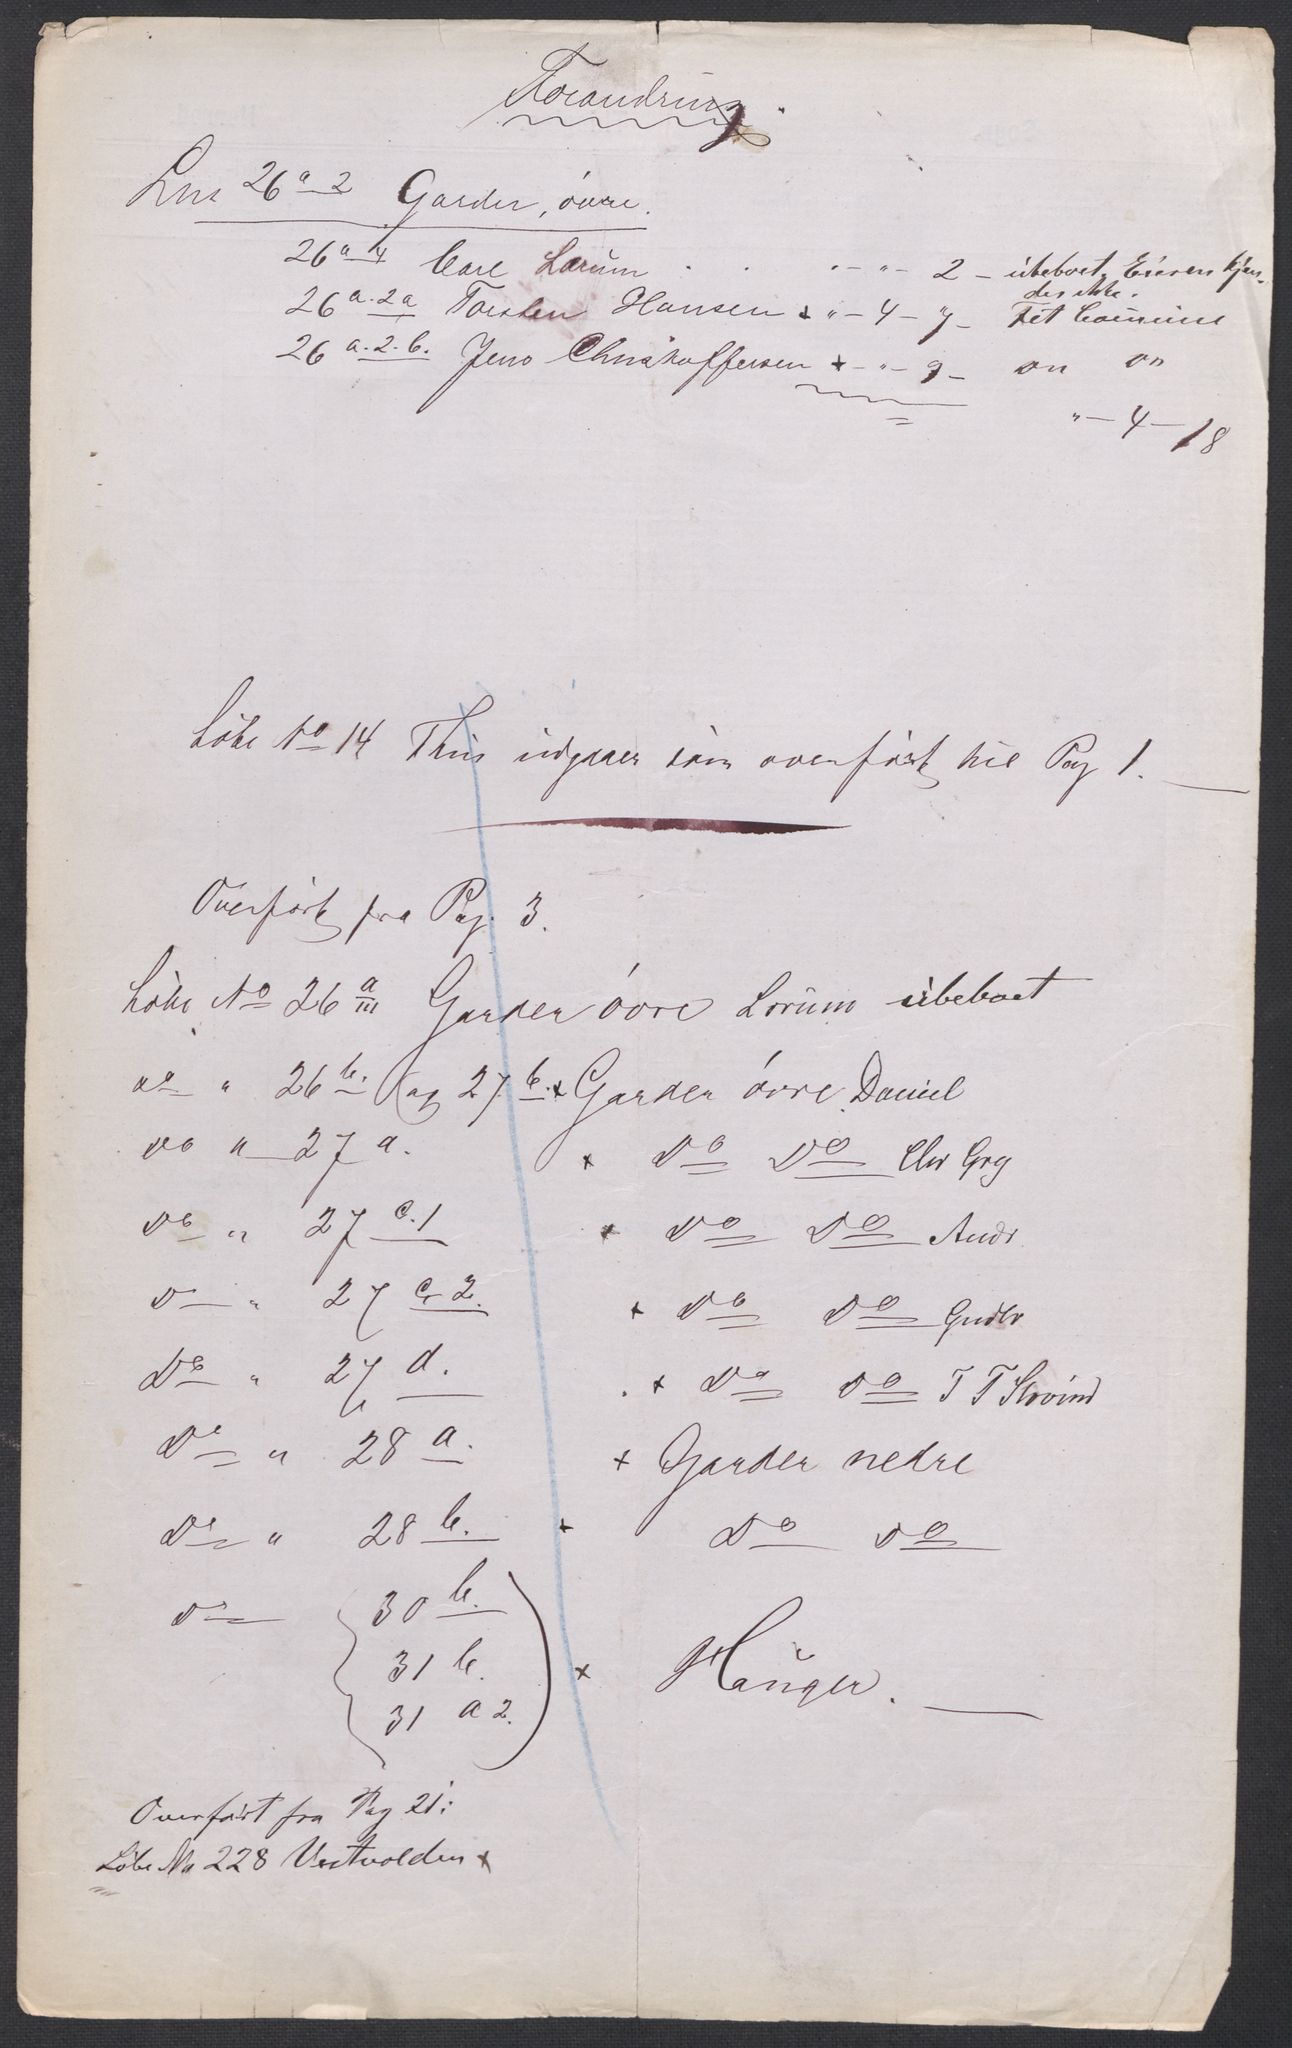 Forandring
Lnr 26 a 2 Garder, övre.
26 a 4 Carl Lorum . . " - " - 2 - ubeboet. Eieren kjen-
des ikke.
26 a. 2a Torsten Hansen x " - 4 - 7 - Fet
26 a. 2. b. Jens Christoffersen x - " - 9 - do do
" - 4 - 18
Löbe No 14 Thus udgaaer som overfört til Pag 1.
Overfört fra Pag. 3.
Löbe No 26 a III Garder övre Lorum ubeboet
do " 26 b. (og 27. b. x Garder övre Daniel
do " 27 a. x do do Chr Grg
do " 27 c. 1 x do do Andr
do " 27 c. 2. x do do Gudbr
do " 27 d. . x do do T T Hovind
do " 28 a. x Garder nedre
do " 28 b. x do do
do { 30 b.
31 b. ) x Hauger.
31 a 2.
Overfört fra Pag 21:
Löbe No 228 Vestvolden x